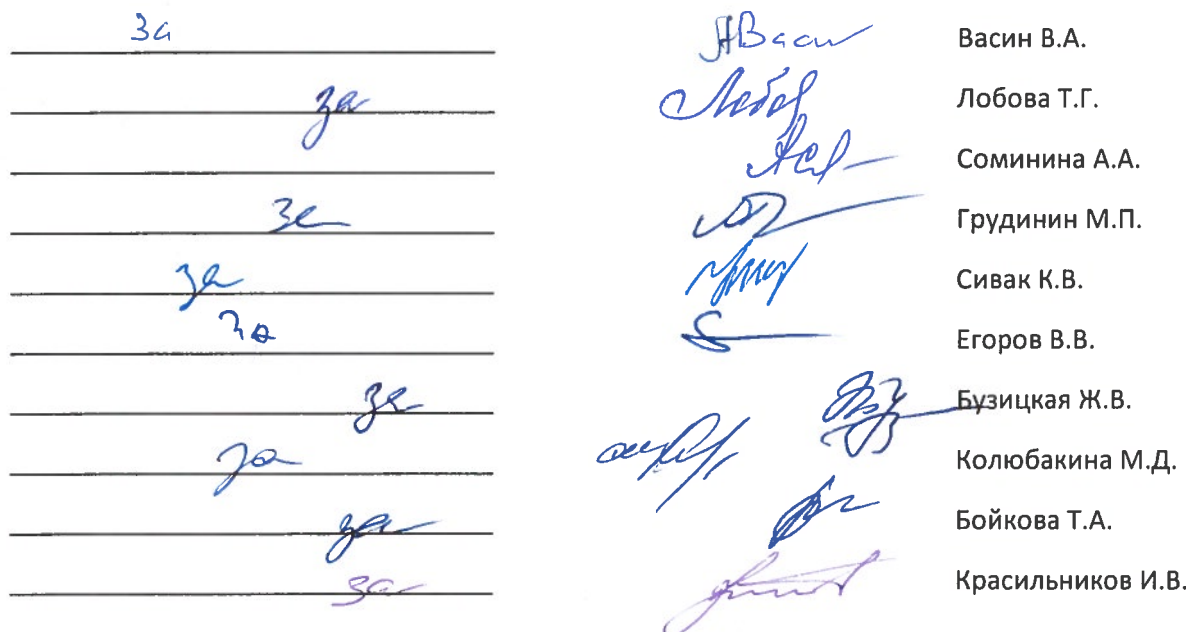 за Васин В.А.
за Лобова Т.Г.
Соминина А.А.
за Грудинин М.П.
за Сивак К.В.
за Егоров В.В.
за Бузицкая Ж.В.
за Колюбакина М.Д.
за Бойкова Т.А.
за Красильников И.В.